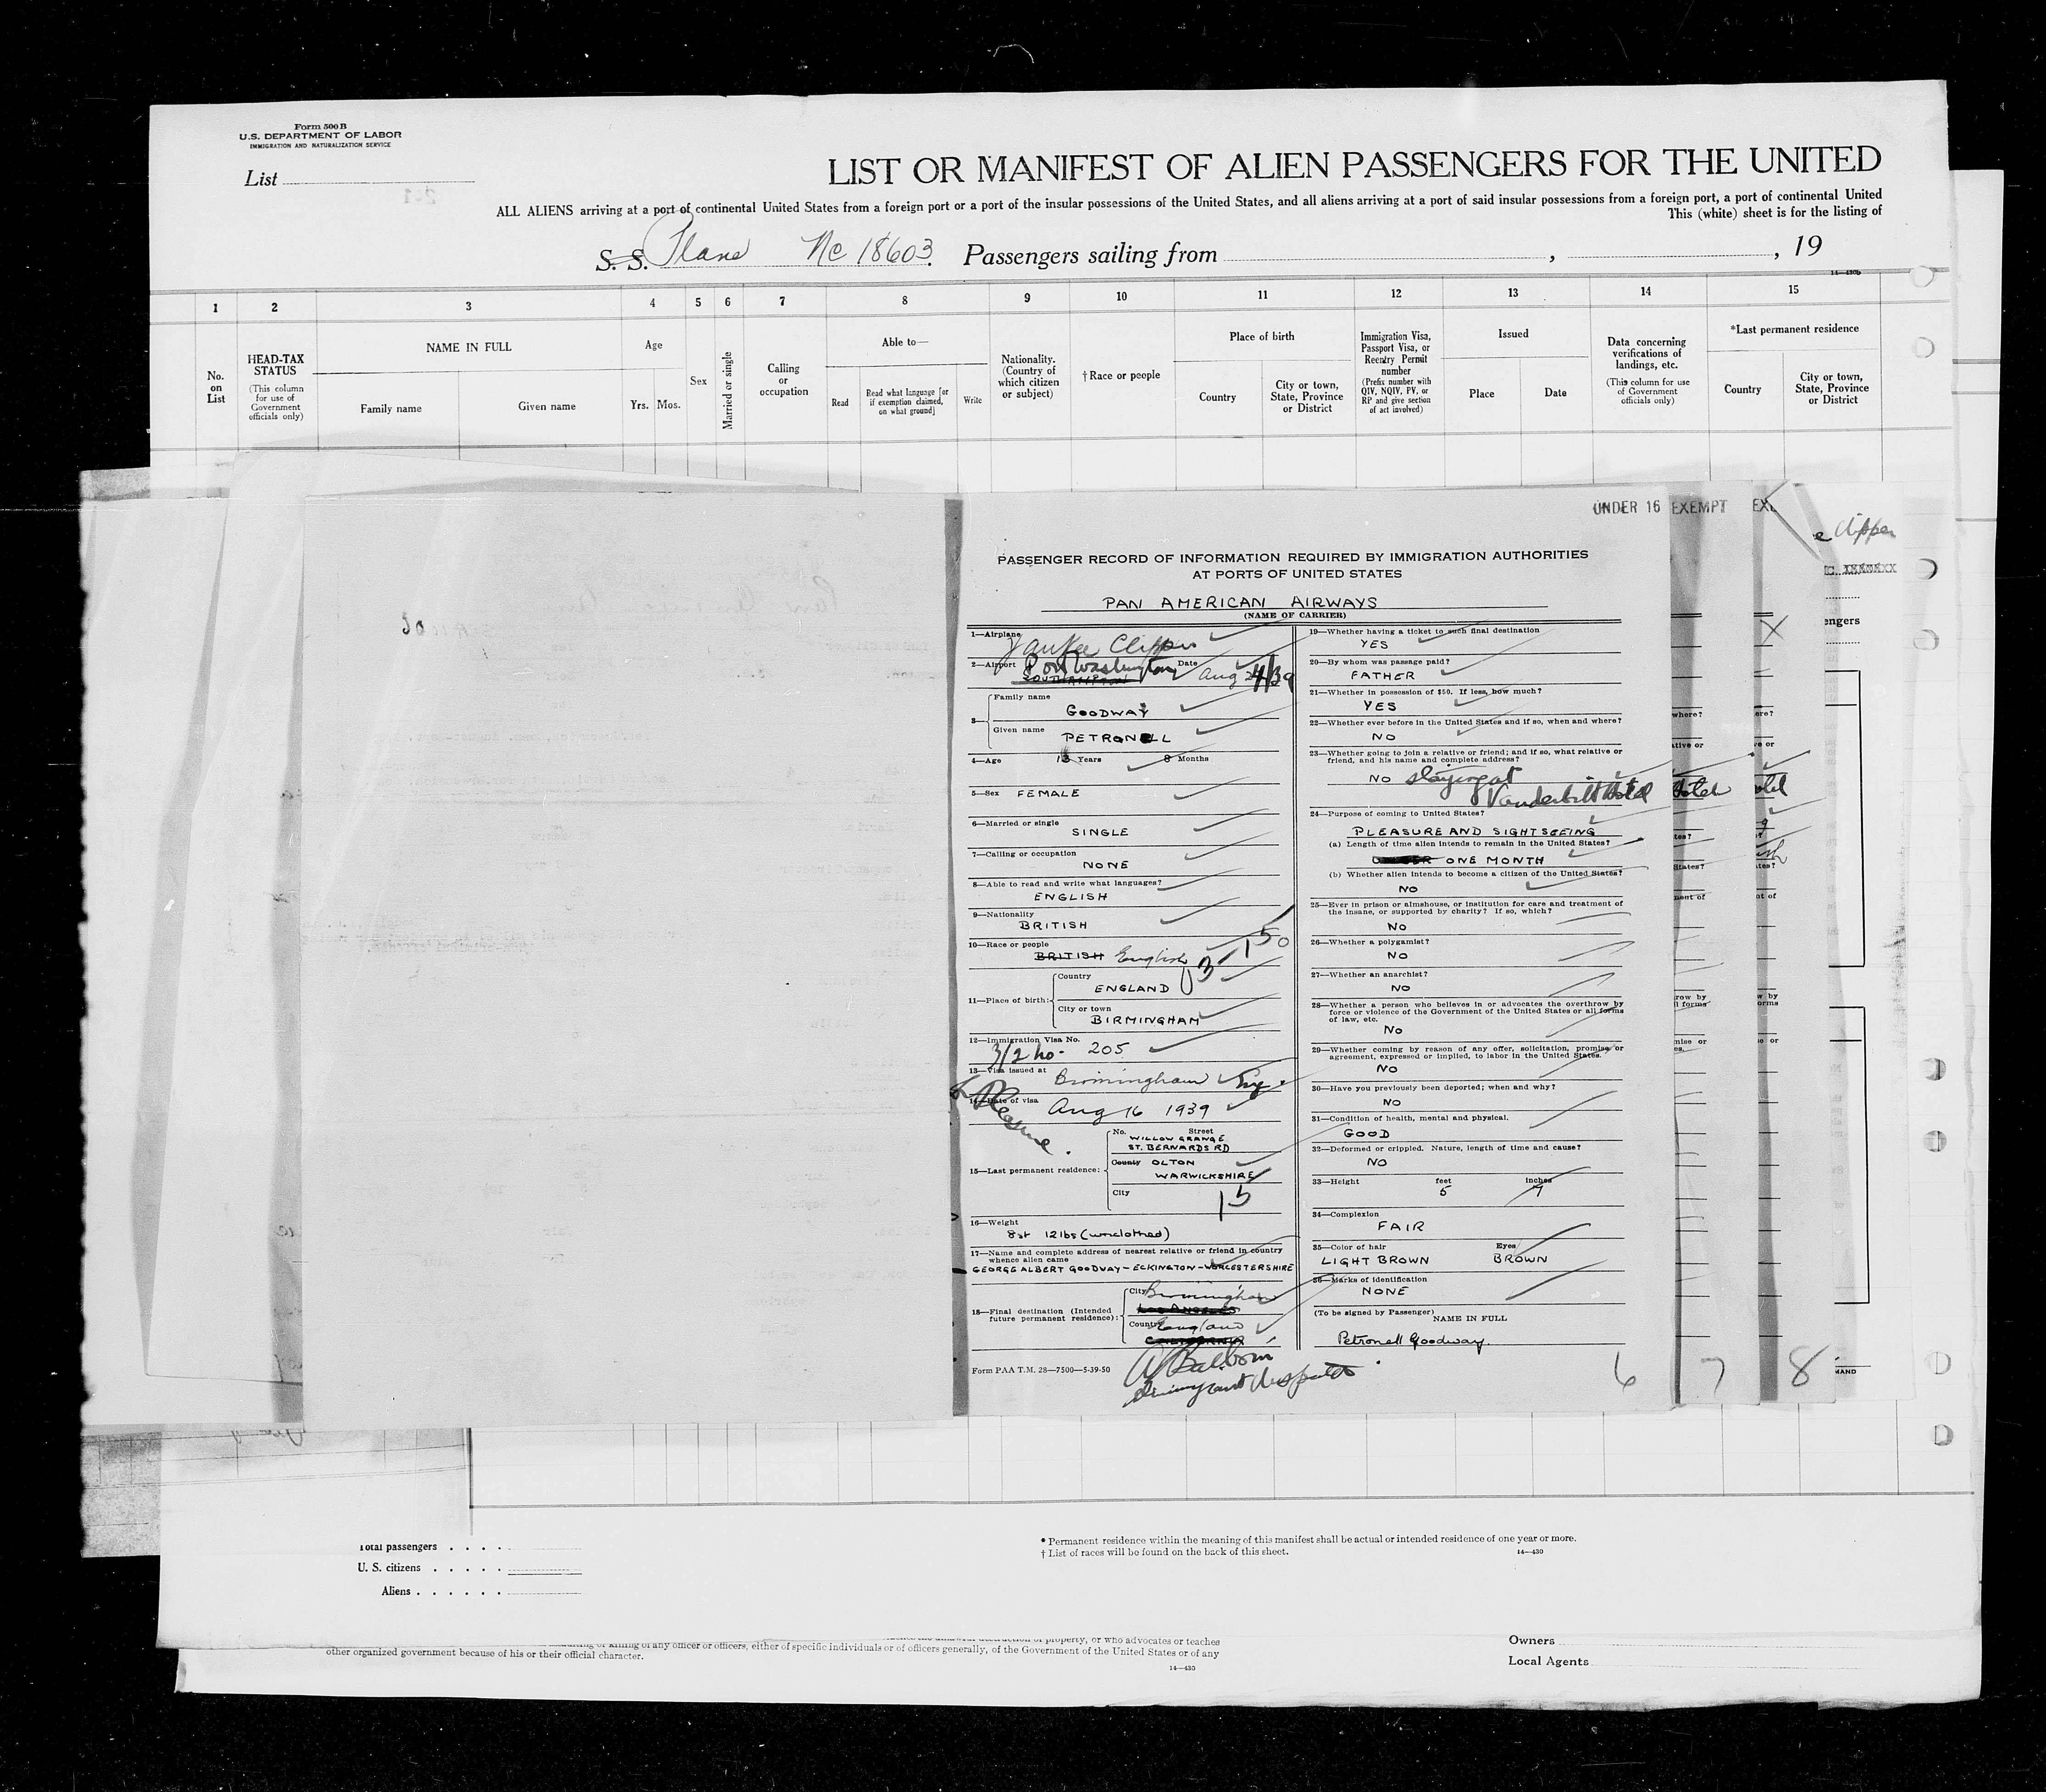 Form 500 B
U.S. DEPARTMENT OF LABOR
IMMIGRATION AND NATURALIZATION SERVICE
List
LIST OR MANIFEST OF ALIEN PASSENGERS FOR THE UNITED
ALL ALIENS arriving at a port of continental United States from a foreign port or a port of the insular possessions of the United States, and all aliens arriving at a port of said insular possessions from a foreign port, a port of continental United
This (white) sheet is for the listing of
S. S. Plane Nc 18603. Passengers sailing from , , 19
14—430b
1 2 3 4 5 6 7 8 9 10 11 12 13 14 15
No. on List
HEAD-TAX STATUS
(This column for use of Government officials only)
NAME IN FULL
Family name
Given name
Age
Yrs. Mos.
Sex
Married or single
Calling or occupation
Able to—
Read
Read what language [or if exemption claimed, on what ground]
Write
Nationality. (Country of which citizen or subject)
†Race or people
Place of birth
Country
City or town, State, Province or District
Immigration Visa, Passport Visa, or Reentry Permit number
(Prefix number with QIV, NQIV, PV, or RP and give section of act involved)
Issued
Place
Date
Data concerning verifications of landings, etc.
(This column for use of Government officials only)
*Last permanent residence
Country
City or town, State, Province or District
UNDER 16 EXEMPT
PASSENGER RECORD OF INFORMATION REQUIRED BY IMMIGRATION AUTHORITIES
AT PORTS OF UNITED STATES
PAN AMERICAN AIRWAYS
(NAME OF CARRIER)
1—Airplane Yankee Clipper
2—Airport Port Washington Date Aug 24/39
SOUTHAMPTON
3— Family name
GOODWAY
Given name
PETRONELL
4—Age 13 Years 8 Months
5—Sex FEMALE
6—Married or single
SINGLE
7—Calling or occupation
NONE
8—Able to read and write what languages?
ENGLISH
9—Nationality
BRITISH
10—Race or people
BRITISH English
11—Place of birth: Country
ENGLAND
City or town
BIRMINGHAM
12—Immigration Visa No.
3/2 205
13—Visa issued at Birmingham Eng.
14—Date of visa Aug 16 1939
Pleasure
15—Last permanent residence: No. Street
WILLOW GRANGE
ST. BERNARDS RD
County OLTON
WARWICKSHIRE
City
15
16—Weight
8st 12lbs (unclothed)
17—Name and complete address of nearest relative or friend in country
whence alien came
GEORGE ALBERT GOODWAY – ECKINGTON – WORCESTERSHIRE
18—Final destination (Intended future permanent residence): City Birmingham
LOS ANGELES
Country England
CALIFORNIA
Form PAA T.M. 28—7500—5-39-50
19—Whether having a ticket to such final destination
YES
20—By whom was passage paid?
FATHER
21—Whether in possession of $50. If less, how much?
YES
22—Whether ever before in the United States and if so, when and where?
NO
23—Whether going to join a relative or friend; and if so, what relative or
friend, and his name and complete address?
NO staying at
Vanderbilt Hotel
24—Purpose of coming to United States?
PLEASURE AND SIGHTSEEING
(a) Length of time alien intends to remain in the United States?
ONE MONTH
(b) Whether alien intends to become a citizen of the United States?
NO
25—Ever in prison or almshouse, or institution for care and treatment of
the insane, or supported by charity? If so, which?
NO
26—Whether a polygamist?
NO
27—Whether an anarchist?
NO
28—Whether a person who believes in or advocates the overthrow by
force or violence of the Government of the United States or all forms
of law, etc.
NO
29—Whether coming by reason of any offer, solicitation, promise or
agreement, expressed or implied, to labor in the United States.
NO
30—Have you previously been deported; when and why?
NO
31—Condition of health, mental and physical.
GOOD
32—Deformed or crippled. Nature, length of time and cause?
NO
33—Height feet inches
5 7
34—Complexion
FAIR
35—Color of hair Eyes
LIGHT BROWN BROWN
36—Marks of identification
NONE
(To be signed by Passenger)
NAME IN FULL
Petronell Goodway.
6 7 8
Total passengers
U. S. citizens
Aliens
* Permanent residence within the meaning of this manifest shall be actual or intended residence of one year or more.
† List of races will be found on the back of this sheet.
14—430
property, or who advocates or teaches
killing of any officer or officers, either of specific individuals or of officers generally, of the Government of the United States or of any
other organized government because of his or their official character.
14—430
Owners
Local Agents